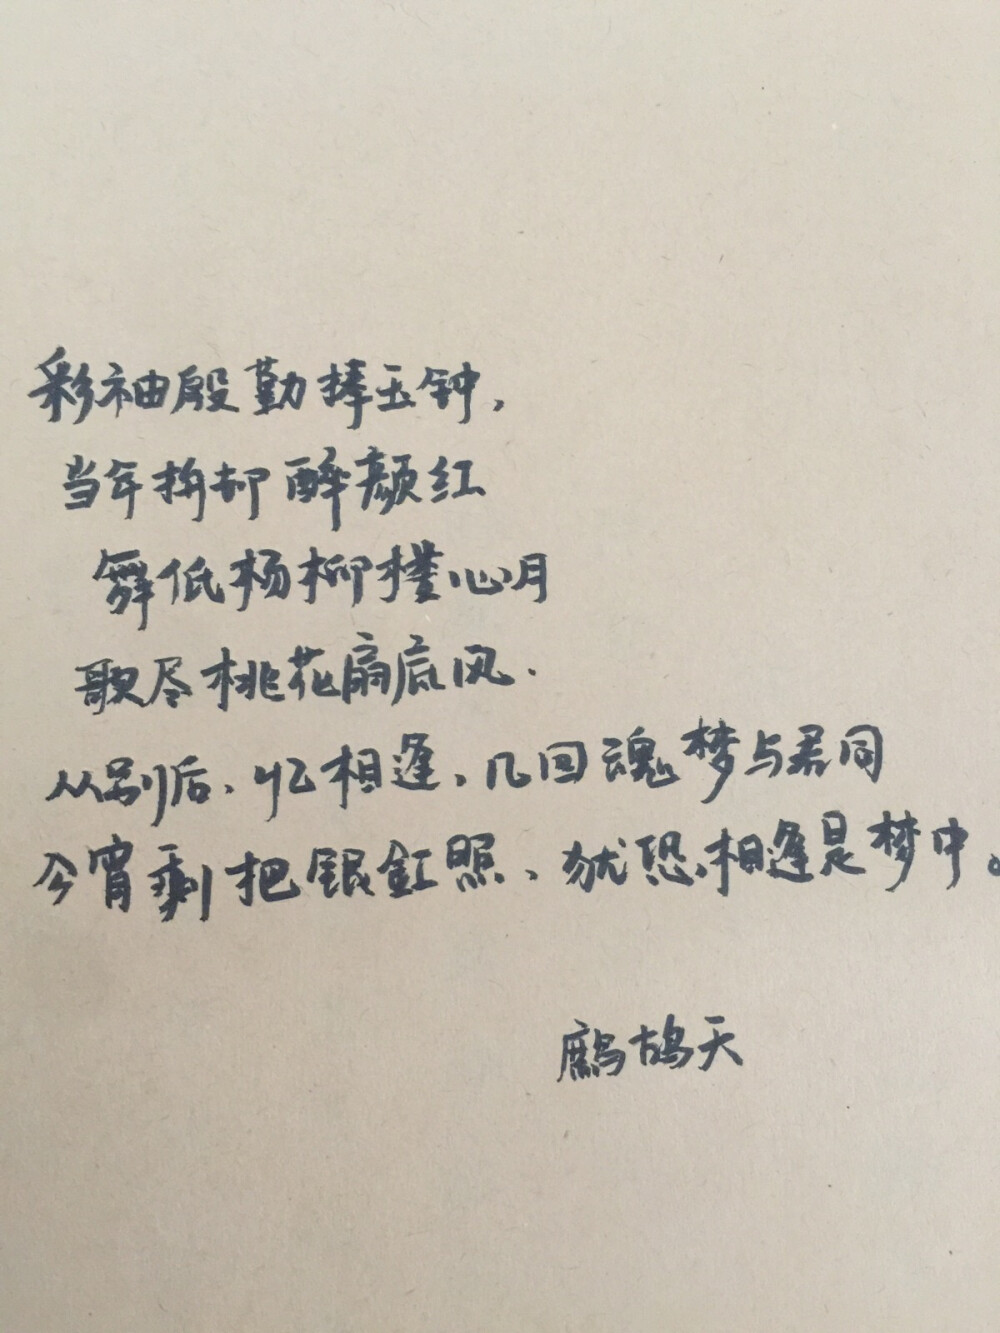 彩袖殷勤捧玉钟，
当年拚却醉颜红
舞低杨柳楼心月
歌尽桃花扇底风.
从别后、忆相逢、几回魂梦与君同
今宵剩把银釭照、犹恐相逢是梦中。
鹧鸪天